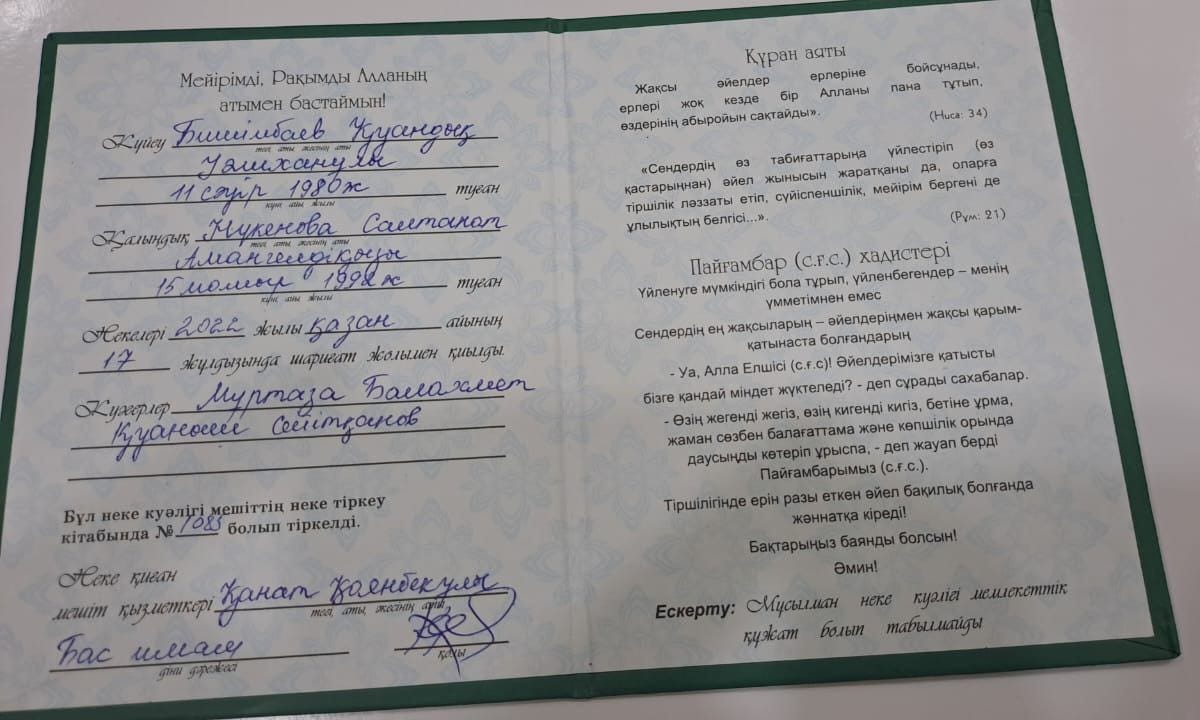 Мейірімді, Рақымды Алланың
атымен бастаймын!
Күйеу Бишімбаев Қуандық
тегі, аты, әкесінің аты
Уәлиханұлы
11 сәуір 1980ж туған
күні, айы, жылы
Қалыңдық Нүкенова Салтанат
тегі, аты, әкесінің аты
Амангелдіқызы
15 мамыр 1992ж туған
күні, айы, жылы
Некелері 2022 жылы қазан айының
17 жұлдызында шариғат жолымен қиылды.
Куәгерлер Муртаза Балахмет
Қуаныш Сейтжанов
Бұл неке куәлігі мешіттің неке тіркеу
кітабында № 1083 болып тіркелді.
Неке қиған
мешіт қызметкері Қанат Қоянбекұлы
тегі, аты, әкесінің аты
Бас имам
діни дәрежесі
қолы
Құран аяты
Жақсы әйелдер ерлеріне бойсұнады,
ерлері жоқ кезде бір Алланы пана тұтып,
өздерінің абыройын сақтайды».
(Ниса: 34)
«Сендердің өз табиғаттарыңа үйлестіріп (өз
қастарыңнан) әйел жынысын жаратқаны да, оларға
тіршілік ләззаты етіп, сүйіспеншілік, мейірім бергені де
ұлылықтың белгісі...».
(Рұм: 21)
Пайғамбар (с.ғ.с.) хадистері
Үйленуге мүмкіндігі бола тұрып, үйленбегендер – менің
үмметімнен емес
Сендердің ең жақсыларың – әйелдеріңмен жақсы қарым-
қатынаста болғандарың
- Уа, Алла Елшісі (с.ғ.с)! Әйелдерімізге қатысты
бізге қандай міндет жүктеледі? - деп сұрады сахабалар.
- Өзің жегенді жегіз, өзің кигенді кигіз, бетіне ұрма,
жаман сөзбен балағаттама және көпшілік орында
даусыңды көтеріп ұрыспа, - деп жауап берді
Пайғамбарымыз (с.ғ.с.).
Тіршілігінде ерін разы еткен әйел бақилық болғанда
жәннатқа кіреді!
Бақтарыңыз баянды болсын!
Әмин!
Ескерту: Мұсылман неке куәлігі мемлекеттік
құжат болып табылмайды